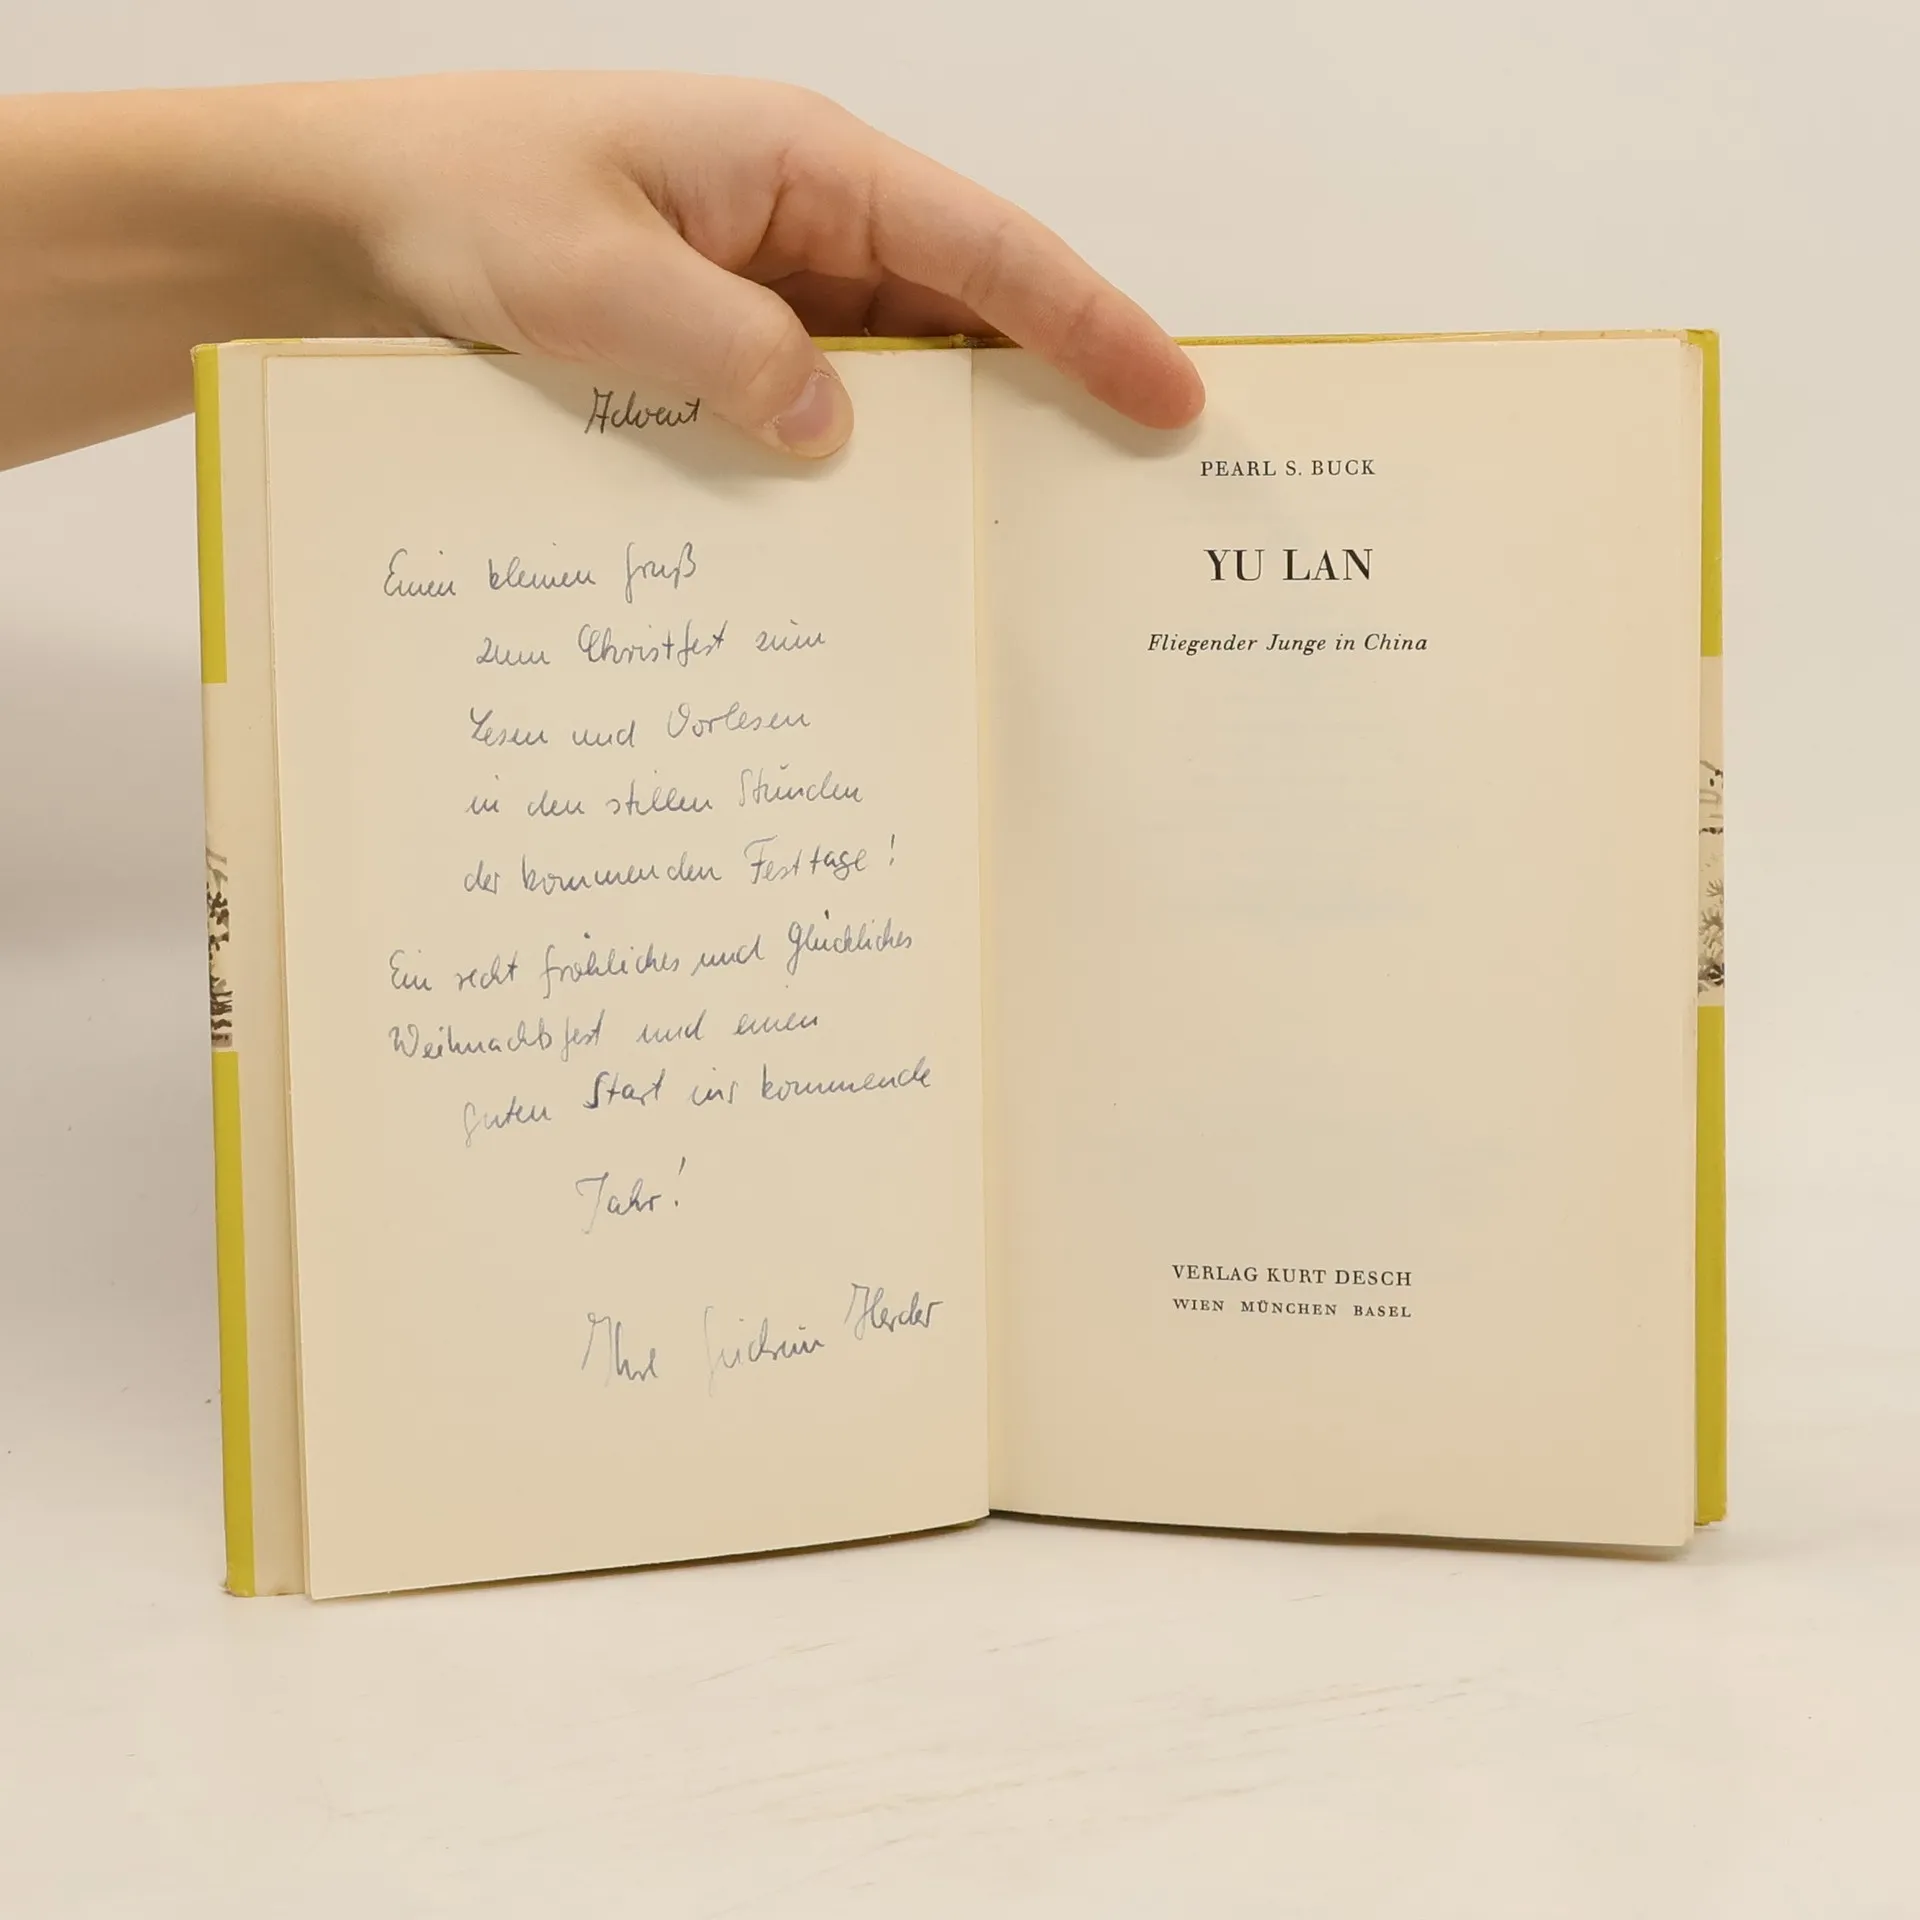 Advent
Einen kleinen Gruß
zum Christfest zum
Lesen und Vorlesen
in den stillen Stunden
der kommenden Festtage!
Ein recht fröhliches und glückliches
Weihnachtsfest und einen
guten Start ins kommende
Jahr!
Ihre Gudrun Herder
PEARL S. BUCK
YU LAN
Fliegender Junge in China
VERLAG KURT DESCH
WIEN MÜNCHEN BASEL